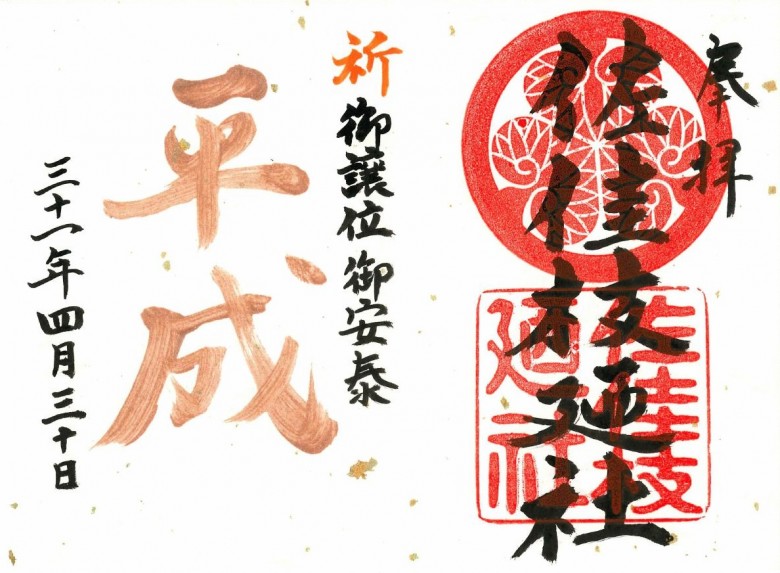 奉拝
佐佳枝廼社
佐佳枝
廼社
祈
御譲位御安泰
平成
三十一年四月三十日